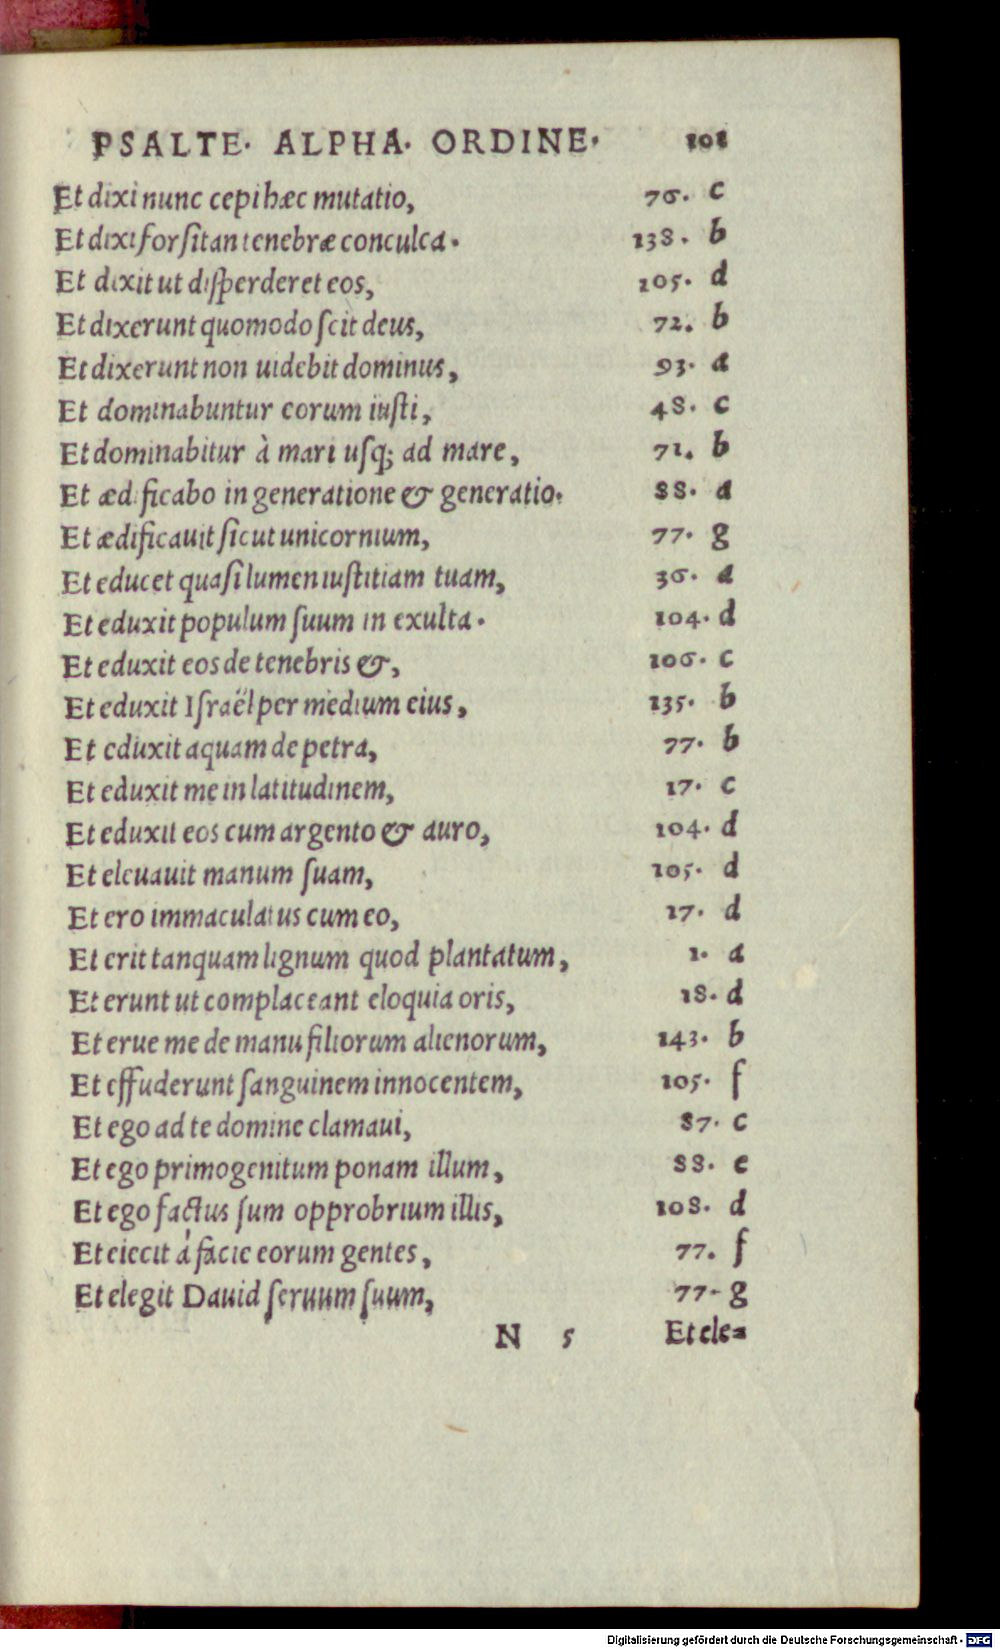 PSALTE. ALPHA. ORDINE. 101
Et dixi nunc cepi hæc mutatio, 76. c
Et dixi forſitan tenebræ conculca. 138. b
Et dixit ut diſperderet eos, 105. d
Et dixerunt quomodo ſcit deus, 72. b
Et dixerunt non uidebit dominus, 93. a
Et dominabuntur eorum iuſti, 48. c
Et dominabitur à mari uſq; ad mare, 71. b
Et ædificabo in generatione & generatio. 88. a
Et ædificauit ſicut unicornium, 77. g
Et educet quaſi lumen iuſtitiam tuam, 36. a
Et eduxit populum ſuum in exulta. 104. d
Et eduxit eos de tenebris &, 106. c
Et eduxit Iſraël per medium eius, 135. b
Et eduxit aquam de petra, 77. b
Et eduxit me in latitudinem, 17. c
Et eduxit eos cum argento & auro, 104. d
Et eleuauit manum ſuam, 105. d
Et ero immaculatus cum eo, 17. d
Et erit tanquam lignum quod plantatum, 1. a
Et erunt ut complaceant eloquia oris, 18. d
Et erue me de manu filiorum alienorum, 143. b
Et effuderunt ſanguinem innocentem, 105. f
Et ego ad te domine clamaui, 87. c
Et ego primogenitum ponam illum, 88. e
Et ego factus ſum opprobrium illis, 108. d
Et eiecit à facie eorum gentes, 77. f
Et elegit Dauid ſeruum ſuum, 77. g
N 5 Et ele=
Digitalisierung gefördert durch die Deutsche Forschungsgemeinschaft - DFG